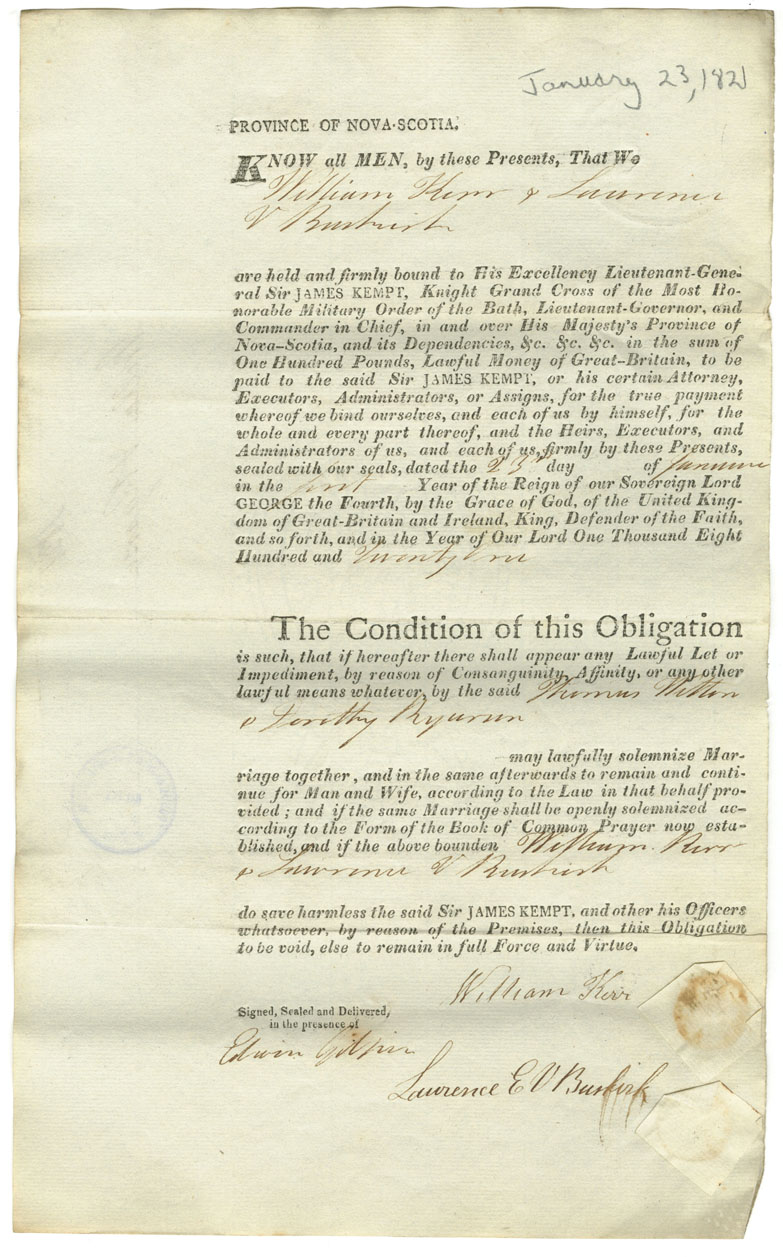 January 23, 1821
PROVINCE OF NOVA-SCOTIA.
KNOW all MEN, by these Presents, That We
William Kerr & Laurence
V Buskirk
are held and firmly bound to His Excellency Lieutenant-Gene-
ral Sir JAMES KEMPT, Knight Grand Cross of the Most Ho-
norable Military Order of the Bath, Lieutenant-Governor, and
Commander in Chief, in and over His Majesty's Province of
Nova-Scotia, and its Dependencies, &c. &c. &c. in the sum of
One Hundred Pounds, Lawful Money of Great-Britain, to be
paid to the said Sir JAMES KEMPT, or his certain Attorney,
Executors, Administrators, or Assigns, for the true payment
whereof we bind ourselves, and each of us by himself, for the
whole and every part thereof, and the Heirs, Executors, and
Administrators of us, and each of us, firmly by these Presents,
sealed with our seals, dated the 23d day of January
in the first Year of the Reign of our Sovereign Lord
GEORGE the Fourth, by the Grace of God, of the United King-
dom of Great-Britain and Ireland, King, Defender of the Faith,
and so forth, and in the Year of Our Lord One Thousand Eight
Hundred and Twenty One
The Condition of this Obligation
is such, that if hereafter there shall appear any Lawful Let or
Impediment, by reason of Consanguinity, Affinity, or any other
lawful means whatever, by the said Thomas
& Dorothy
may lawfully solemnize Mar-
riage together, and in the same afterwards to remain and conti-
nue for Man and Wife, according to the Law in that behalf pro-
vided; and if the same Marriage shall be openly solemnized ac-
cording to the Form of the Book of Common Prayer now esta-
blished, and if the above bounden William Kerr
& Lawrence V Buskirk
do save harmless the said Sir JAMES KEMPT, and other his Officers
whatsoever, by reason of the Premises, then this Obligation
to be void, else to remain in full Force and Virtue.
William Kerr
Signed, Sealed and Delivered,
in the presence of
Edwin Gilpin
Lawrence E V Buskirk